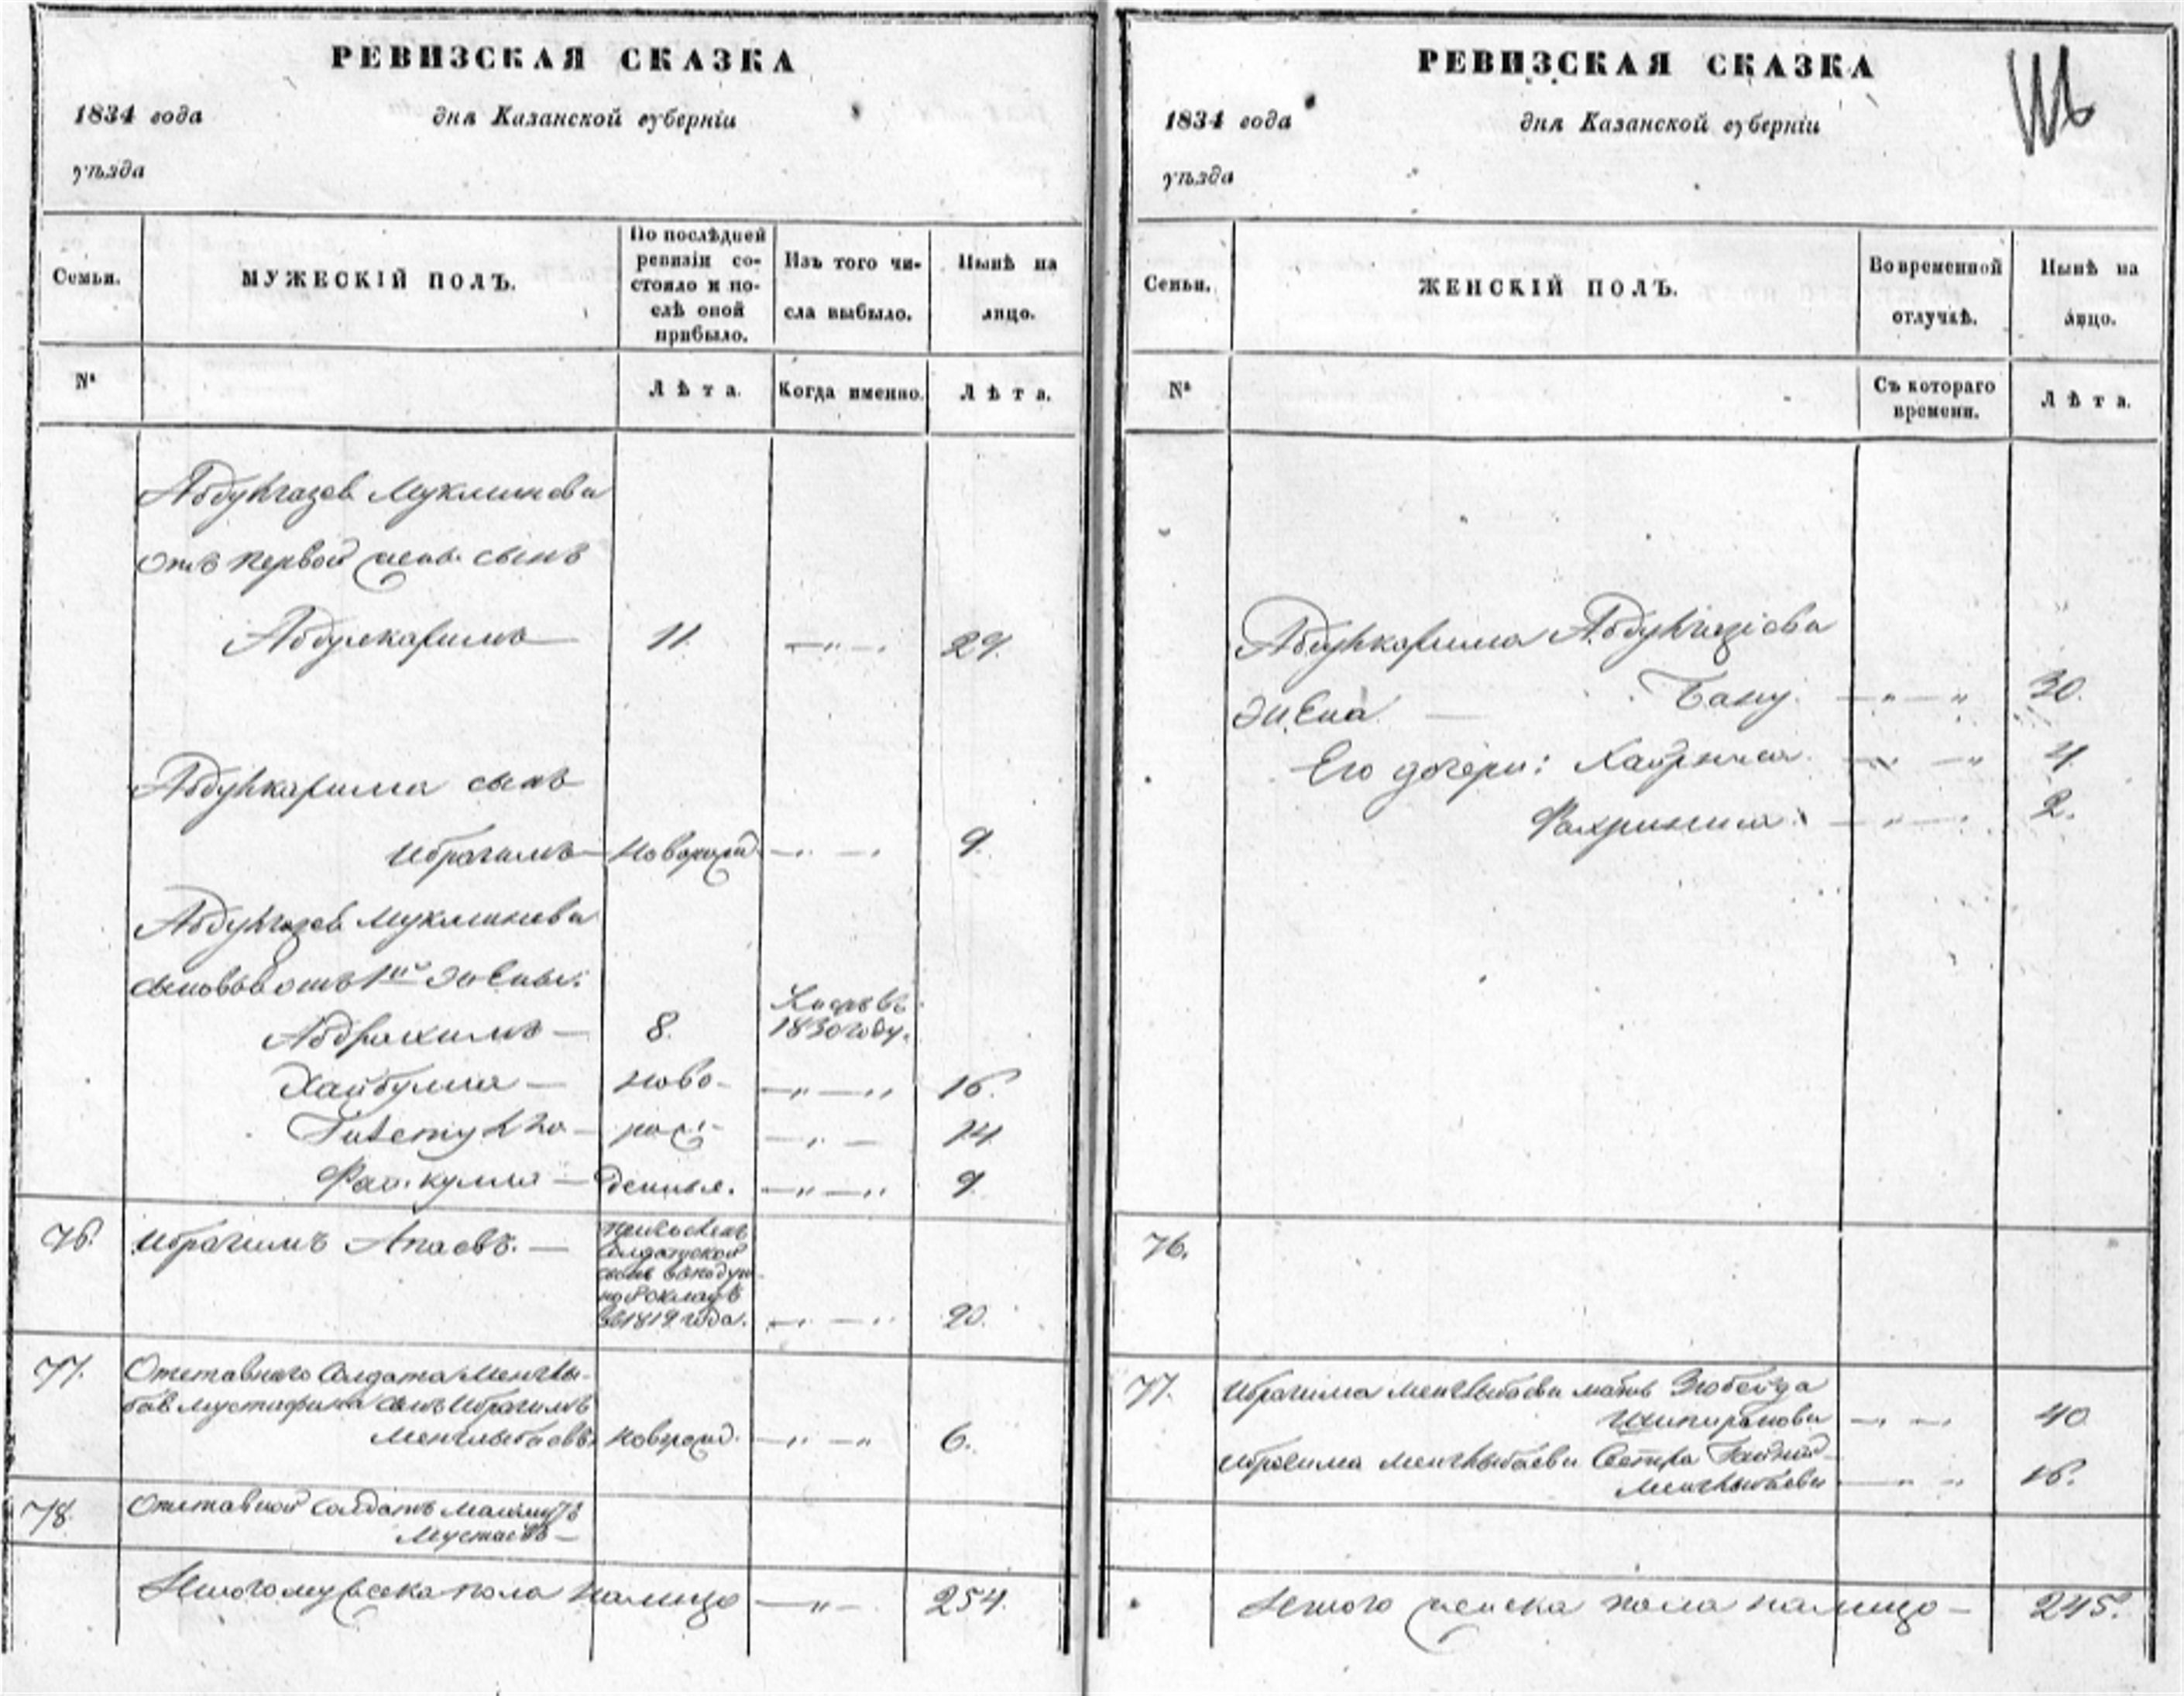 РЕВИЗСКАЯ СКАЗКА
1834 года дня Казанской губерніи
уѣзда
Семьи.
МУЖЕСКІЙ ПОЛЪ.
По послѣдней
ревизіи со-
стояло и по-
слѣ оной
прибыло.
Изъ того чи-
сла выбыло.
Нынѣ на
лицо.
№
Лѣта.
Когда именно.
Лѣта.
Абдулгазев Муклинова
отъ первой жены сынъ
Абдулкаримъ 11. 29.
Абдулкарима сынъ
Ибрагимъ новорожд. 9.
Абдулгазев Муклинова
сыновья отъ 1й жены:
Абдрахимъ 8. въ
1830 году.
Хайбулла ново- 16.
рож- 14.
Фаткулла денныя. 9.
76. Ибрагимъ Апаевъ.
солдатской
сынъ въ подуш-
ной окладъ
1819 года. 20.
77. Отставнаго Солдата Менглы-
бая Мустафина сынъ Ибрагимъ
Менглыбаевъ новорожд. 6.
78. Отставной Солдатъ
Мустаевъ
Итого мужеска пола налицо 254.
РЕВИЗСКАЯ СКАЗКА
1834 года дня Казанской губерніи
уѣзда
Семьи.
ЖЕНСКІЙ ПОЛЪ.
Во временной
отлучкѣ.
Нынѣ на
лицо.
№
Съ котораго
времени.
Лѣта.
Абдулкарима Абдулгазіева
жена Бану. 30.
Его дочери: 4.
2.
76.
77. Ибрагима Менглыбаева мать Зюбейда
40.
Ибрагима Менглыбаева Сестра
Менглыбаева 16.
Итого женска пола налицо 245.